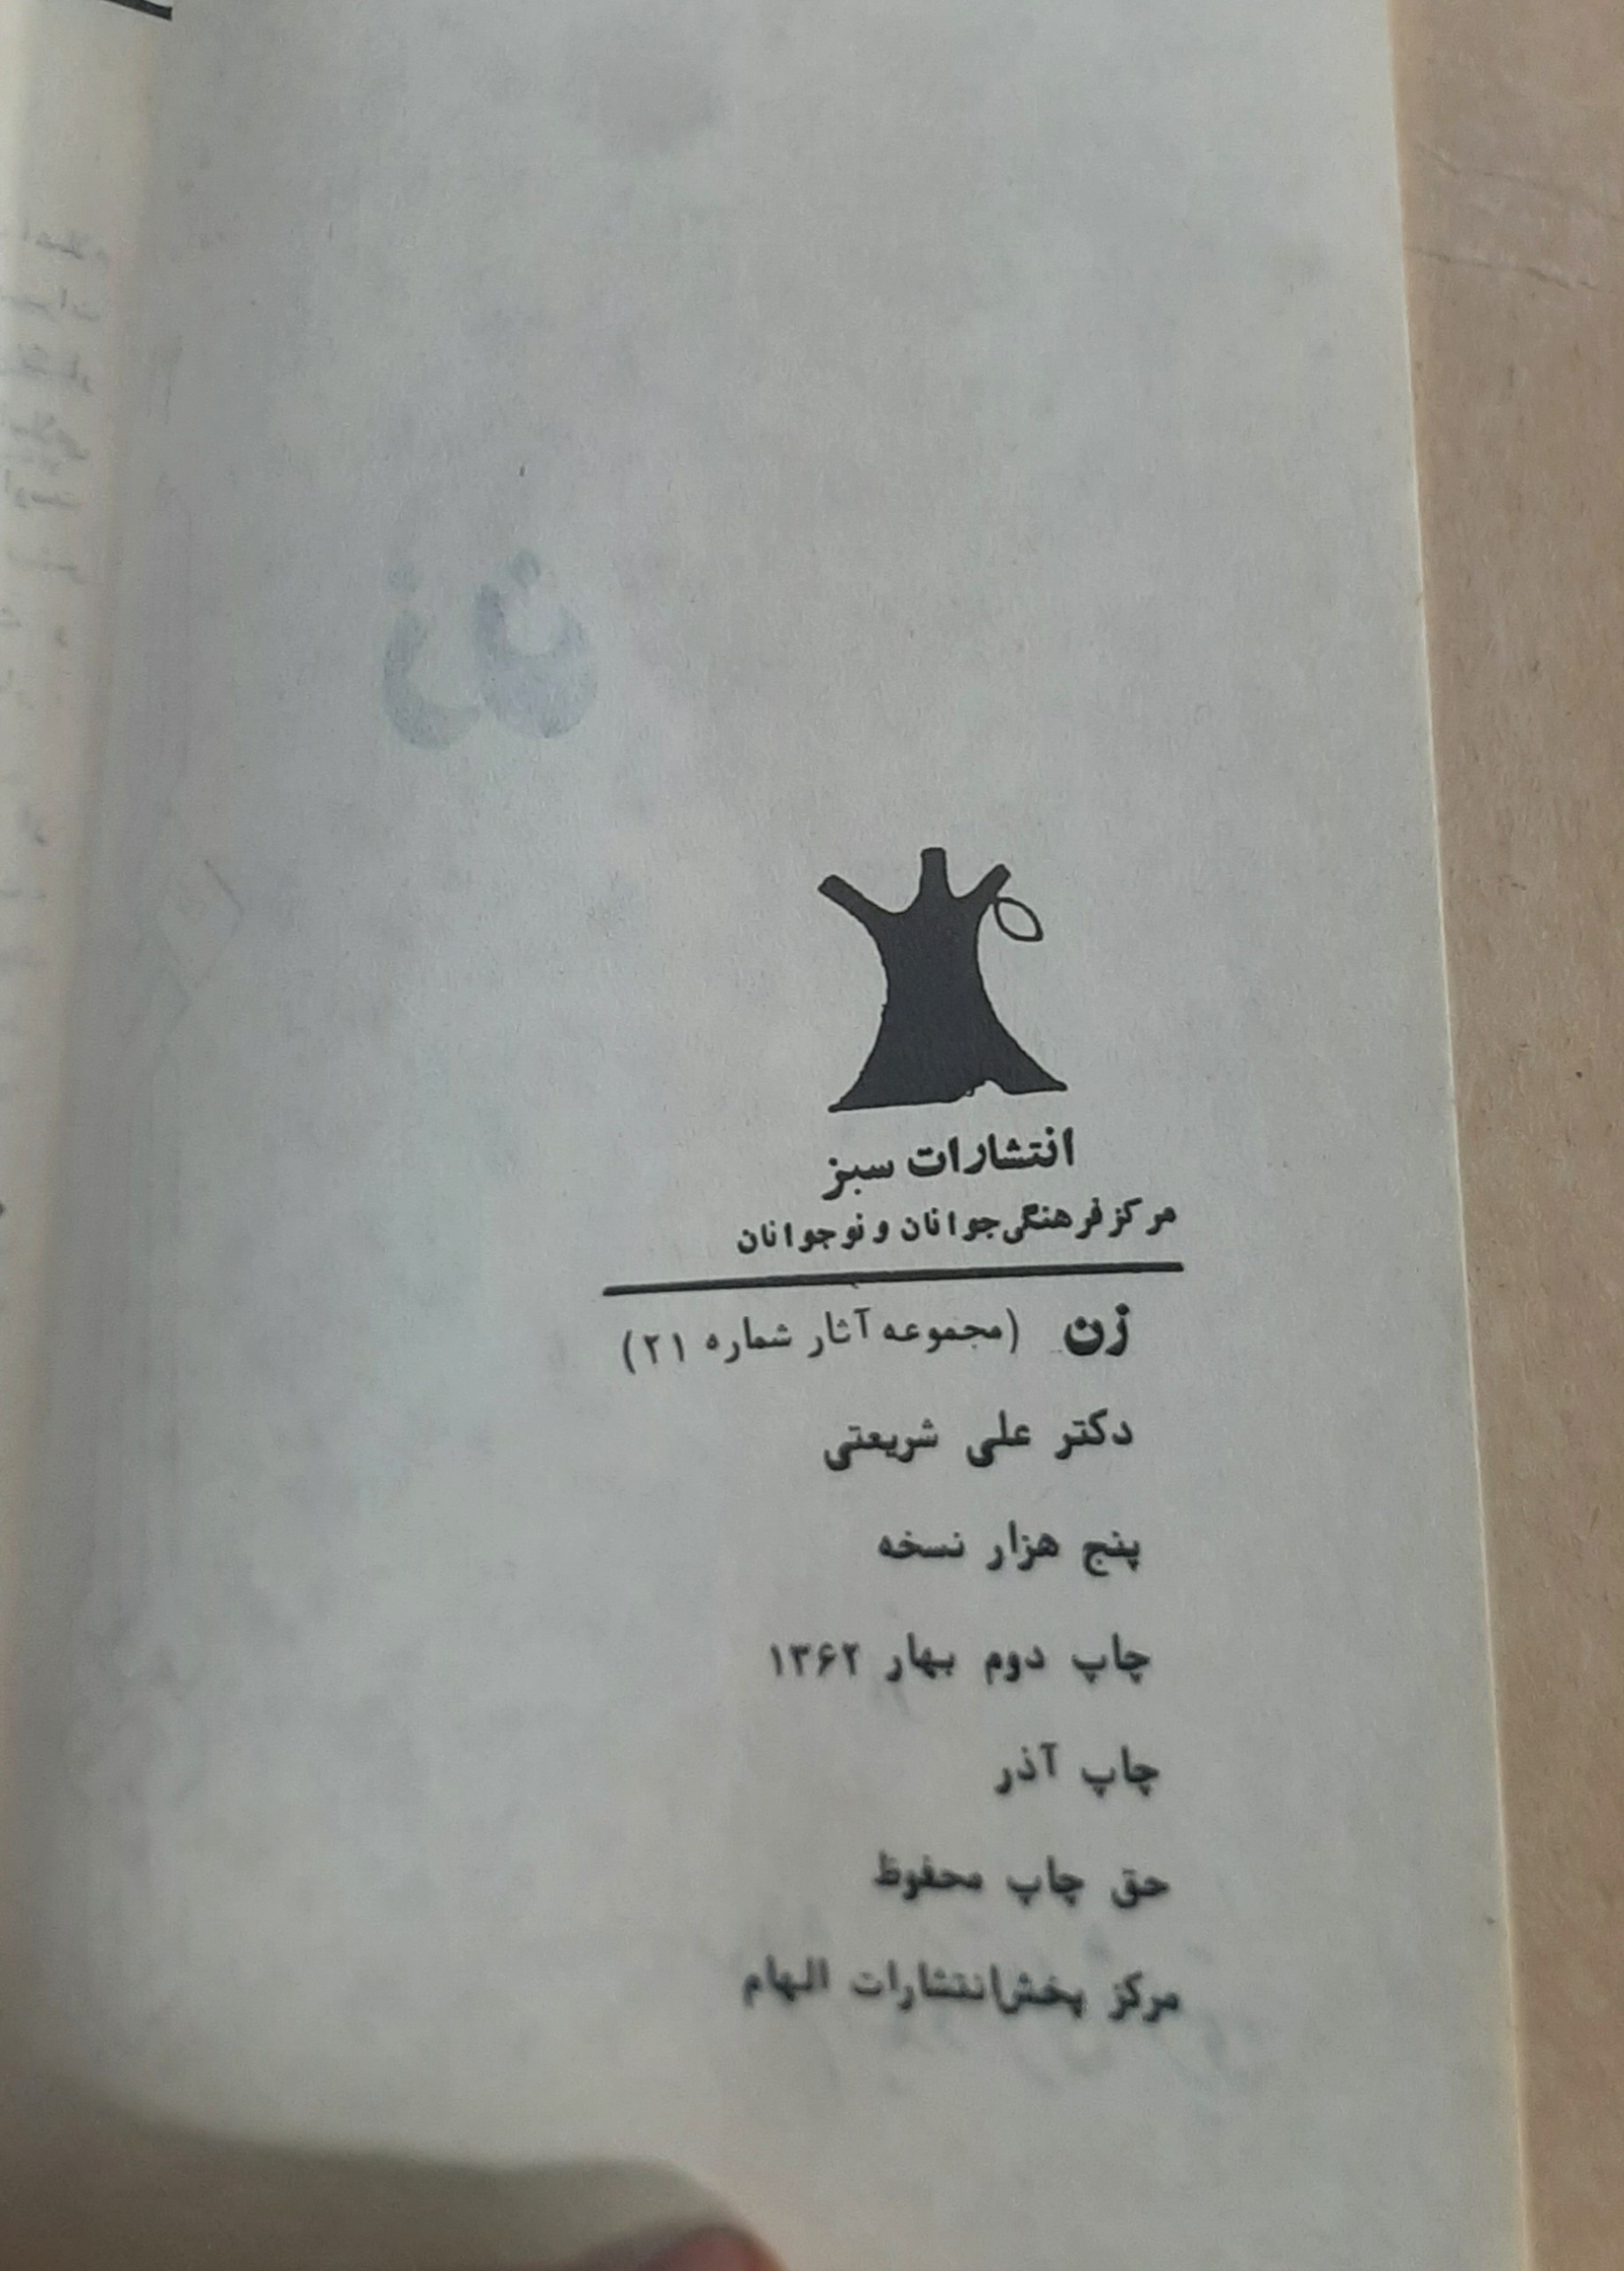 انتشارات سبز
مرکز فرهنگی جوانان و نوجوانان
زن (مجموعه آثار شماره ۲۱)
دکتر علی شریعتی
پنج هزار نسخه
چاپ دوم بهار ۱۳۶۲
چاپ آذر
حق چاپ محفوظ
مرکز پخش انتشارات الهام